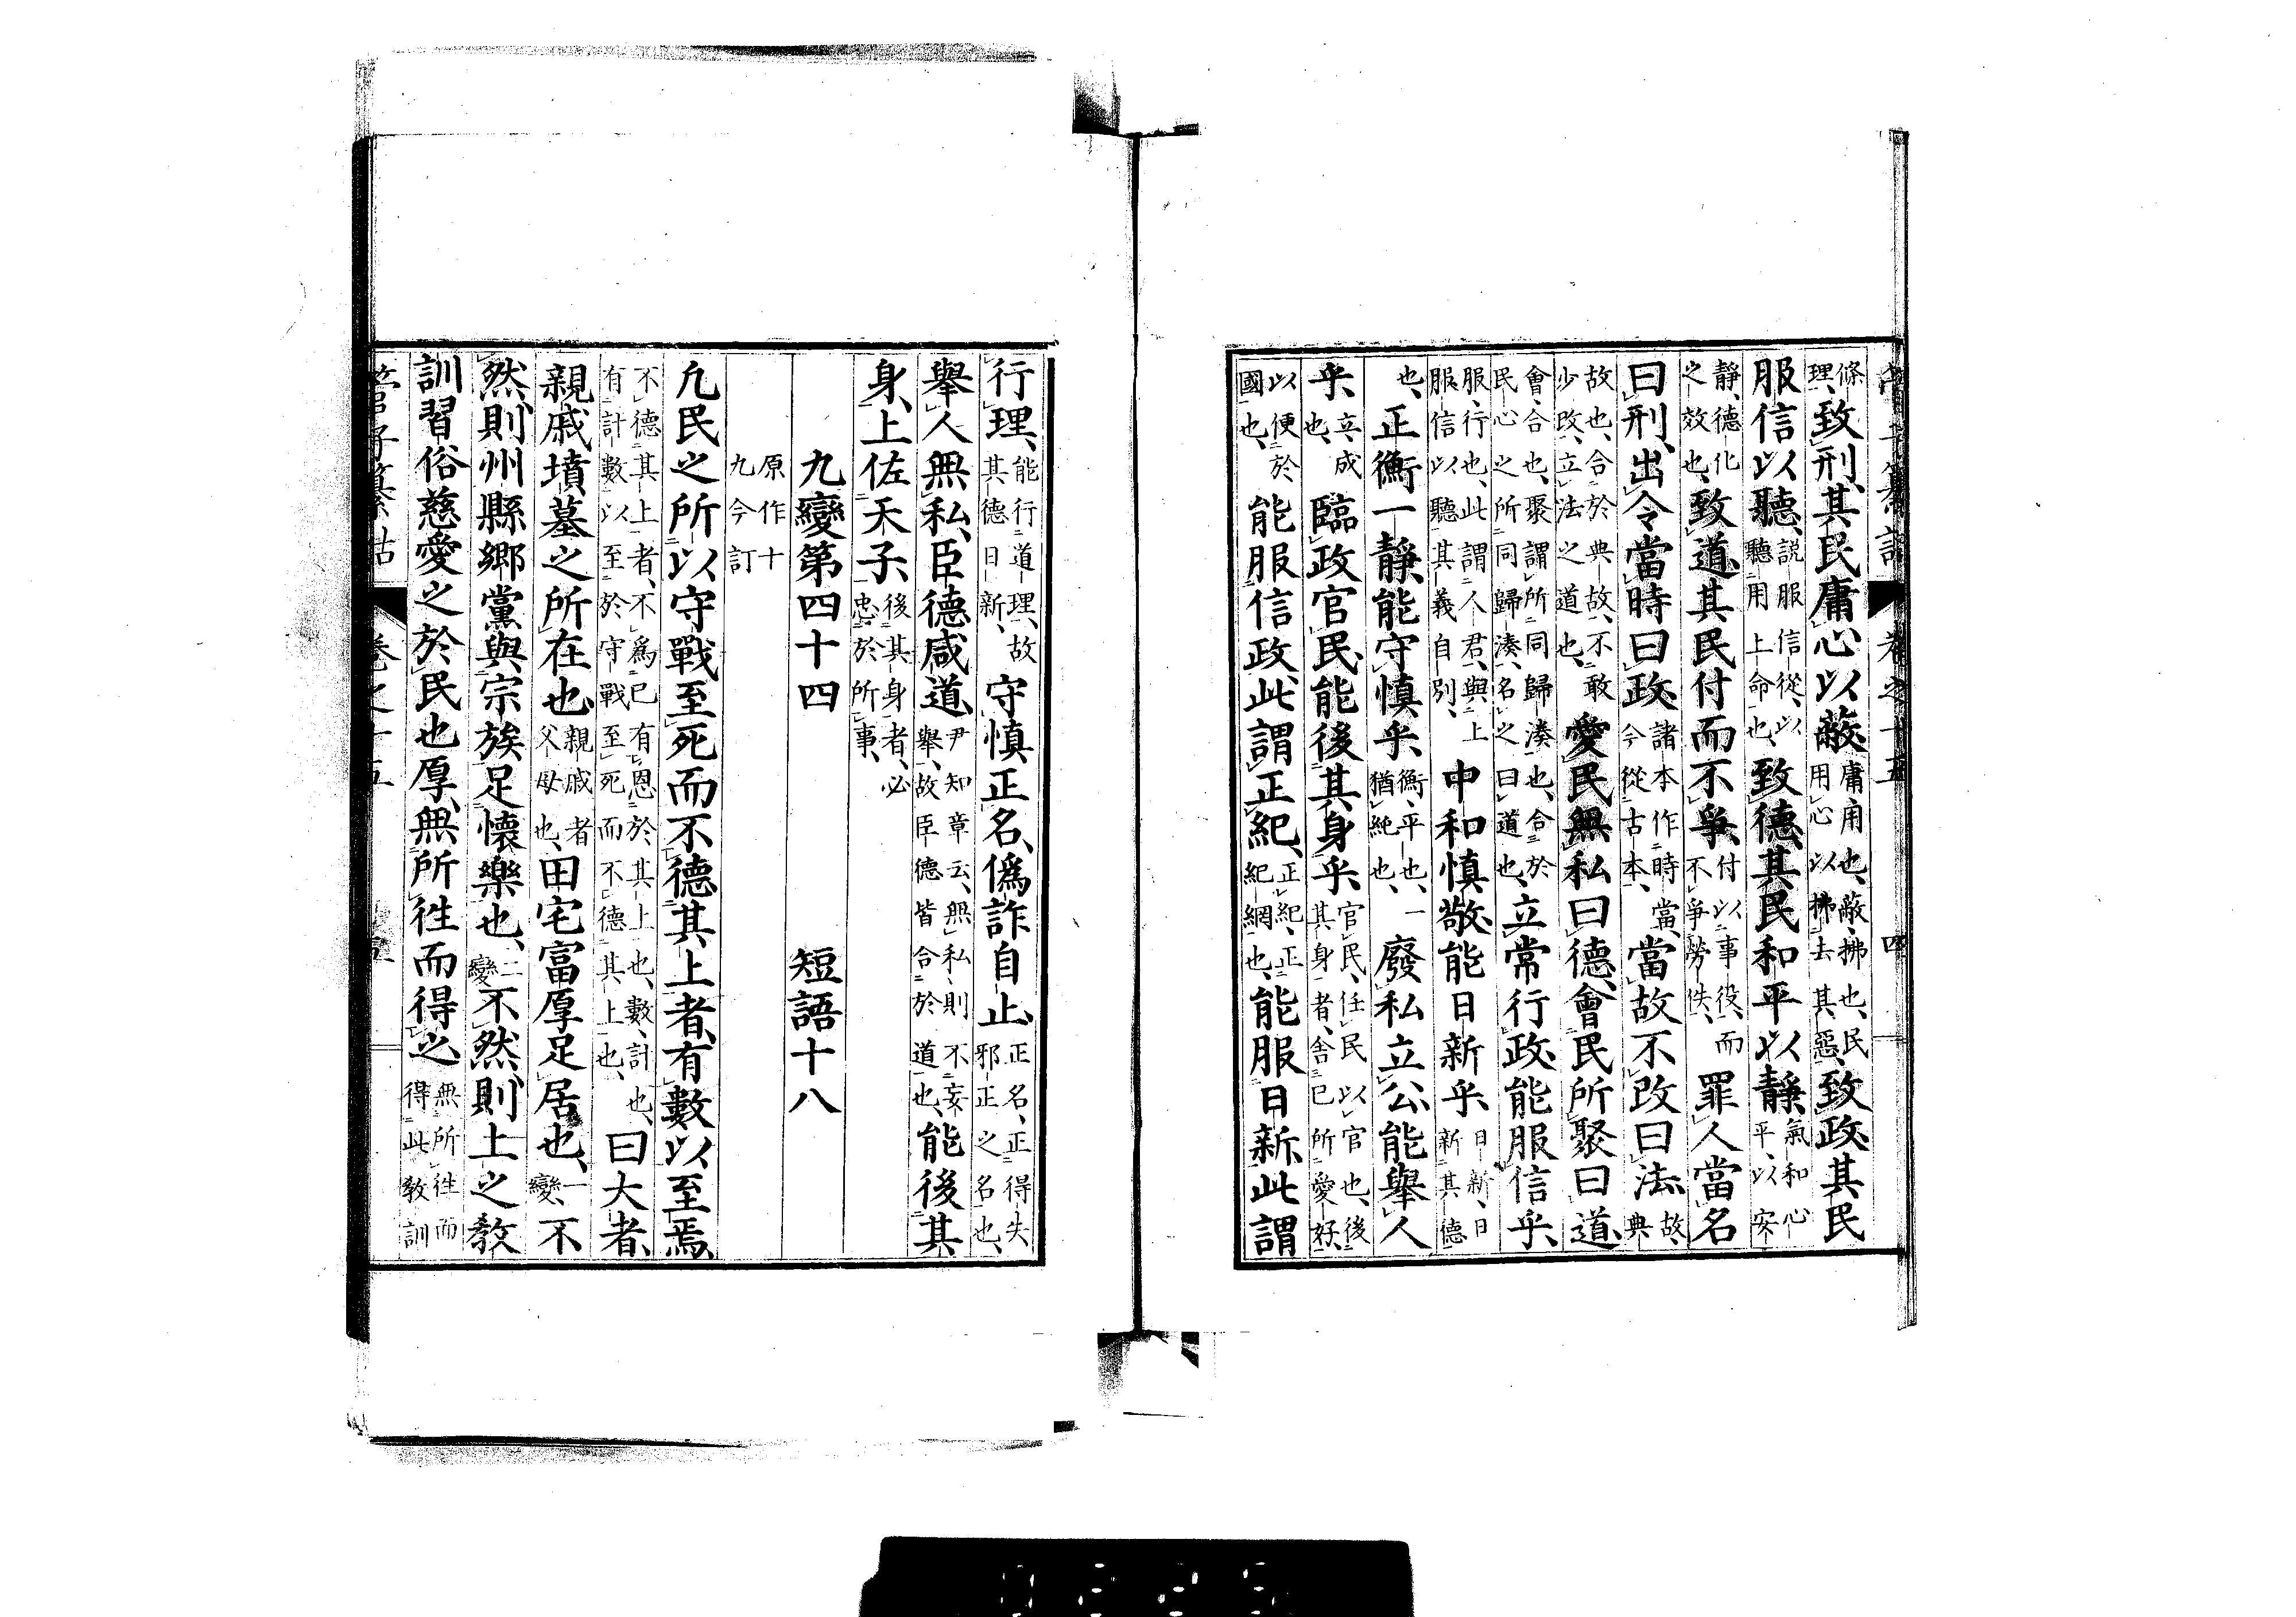 管子纂詁　卷之十五　四
條理、致刑、其民庸心以蔽、庸用也、蔽、拂也、民用心以拂去其惡、致政、其民
服信以聽、説服信從、以聽用上命也、致德、其民和平以靜、氣和心平、以安
靜、德化之效也、致道、其民付而不爭、付以事役、而不爭勞佚、罪人當名
曰刑、出令當時曰政、諸本作時當、今從古本、當故不改曰法、故、典
故也、合於典故、不敢少改、立法之道也、愛民無私曰德、會民所聚曰道、
會、合也、聚謂所同歸湊也、合於民心之所同歸湊、名之曰道也、立常行政、能服信乎、
服、行也、此謂人君、與上服信以聽其義自別、中和慎敬、能日新乎、日新、日新其德
也、正衡一靜、能守慎乎、衡、平也、一猶純也、廢私立公、能舉人
乎、立、成也、臨政官民、能後其身乎、官民、任民以官也、後其身者、舍已所愛好、
以便於國也、能服信政、此謂正紀、正紀、正紀綱也、能服日新、此謂
行理、能行道理、故其德日新、守慎正名、僞詐自止、正名、正得失邪正之名也、
舉人無私、臣德咸道、尹知章云、無私則不妄舉、故臣德皆合於道也、能後其
身、上佐天子、後其身者、必忠於所事、
九變第四十四　短語十八
原作十九今訂
凡民之所以守戰至死而不德其上者、有數以至焉、
不德其上者、不爲已有恩於其上也、數、計也、有計數以至於守戰至死而不德其上也、曰大者、
親戚墳墓之所在也、親戚者父母也、田宅富厚足居也、一變、不
然、則州縣鄉黨與宗族足懷樂也、二變、不然、則上之教
訓習俗慈愛之於民也厚、無所往而得之、無所往而得此教訓
管子纂詁　卷之十五　五